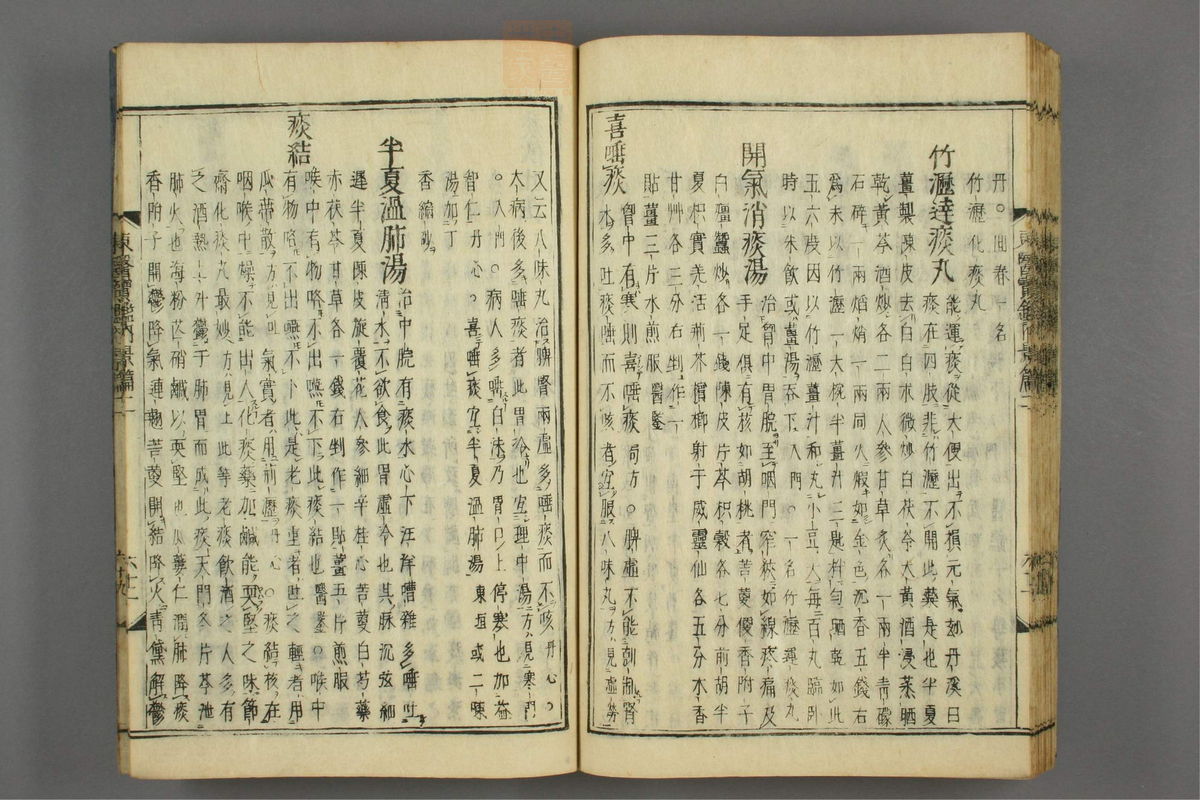 丹○一卷一名
竹瀝化痰丸
竹瀝達痰丸
能運痰從大便出不損元氣妙丹溪曰
痰在四肢非竹瀝不開此藥是也半夏
薑製陳皮去白白朮微炒白茯苓大黃酒浸蒸晒
乾黃芩酒炒各二兩人參甘草炙各一兩半青礞
石碎一兩焰硝一兩同火煆如金色沉香五錢右
爲末以竹瀝一大椀半薑汁二匙拌匀晒乾如此
五六度因以竹瀝薑汁和丸小豆大每百丸臨臥
時以米飮或薑湯呑下入門○一名竹瀝運痰丸
開氣消痰湯
治胷中胃脘至咽門窄狹如線疼痛及
手足俱有核如胡桃者苦蔞便香附子
白殭蠶炒各一錢陳皮片芩枳殼各七分前胡半
夏枳實羌活荊芥檳榔射干威靈仙各五分木香
甘艸各三分右剉作一
貼薑三片水煎服醫鑑
喜唾痰
胷中有寒則喜唾痰局方○脾虛不能制腎
水多吐痰唾而不咳者宜服八味丸
又云八味丸治脾腎兩虛多唾痰而不咳丹心○
大病後多唾痰者此胃冷也宜理中湯方見寒門
○入門○病人多唾白沫乃胃口上停寒也加益
智仁丹心○喜唾痰宜半夏溫肺湯東垣或二陳
湯加丁
香縮砂
半夏溫肺湯
治中脘有痰水心下汪洋嘈雜多唾吐
淸水不欲食此胃虛冷也其脉沉弦細
遲半夏陳皮旋覆花人參細辛桂心苦蔞白芍藥
赤茯苓甘草各一錢右剉作一貼薑五片煎服
痰結
喉中有物咯不出嚥不下此痰結也醫鑑○喉中
有物咯不出嚥不下此是老痰重者吐之輕者用
瓜蔕散方見吐氣實者用荊瀝丹心○痰結核在
咽喉中燥不能出入化痰藥加鹹能耎堅之味節
齋化痰丸最妙方見上此等老痰飮酒之人多有
之酒熱上升鬱于肺胃而成此痰天門冬片芩泄
肺火也海粉芒硝鹹以耎堅也瓜蔞仁潤肺降痰
香附子開鬱降氣連翹苦蔞開結降火靑黛解鬱
東醫寶鑑內景篇二